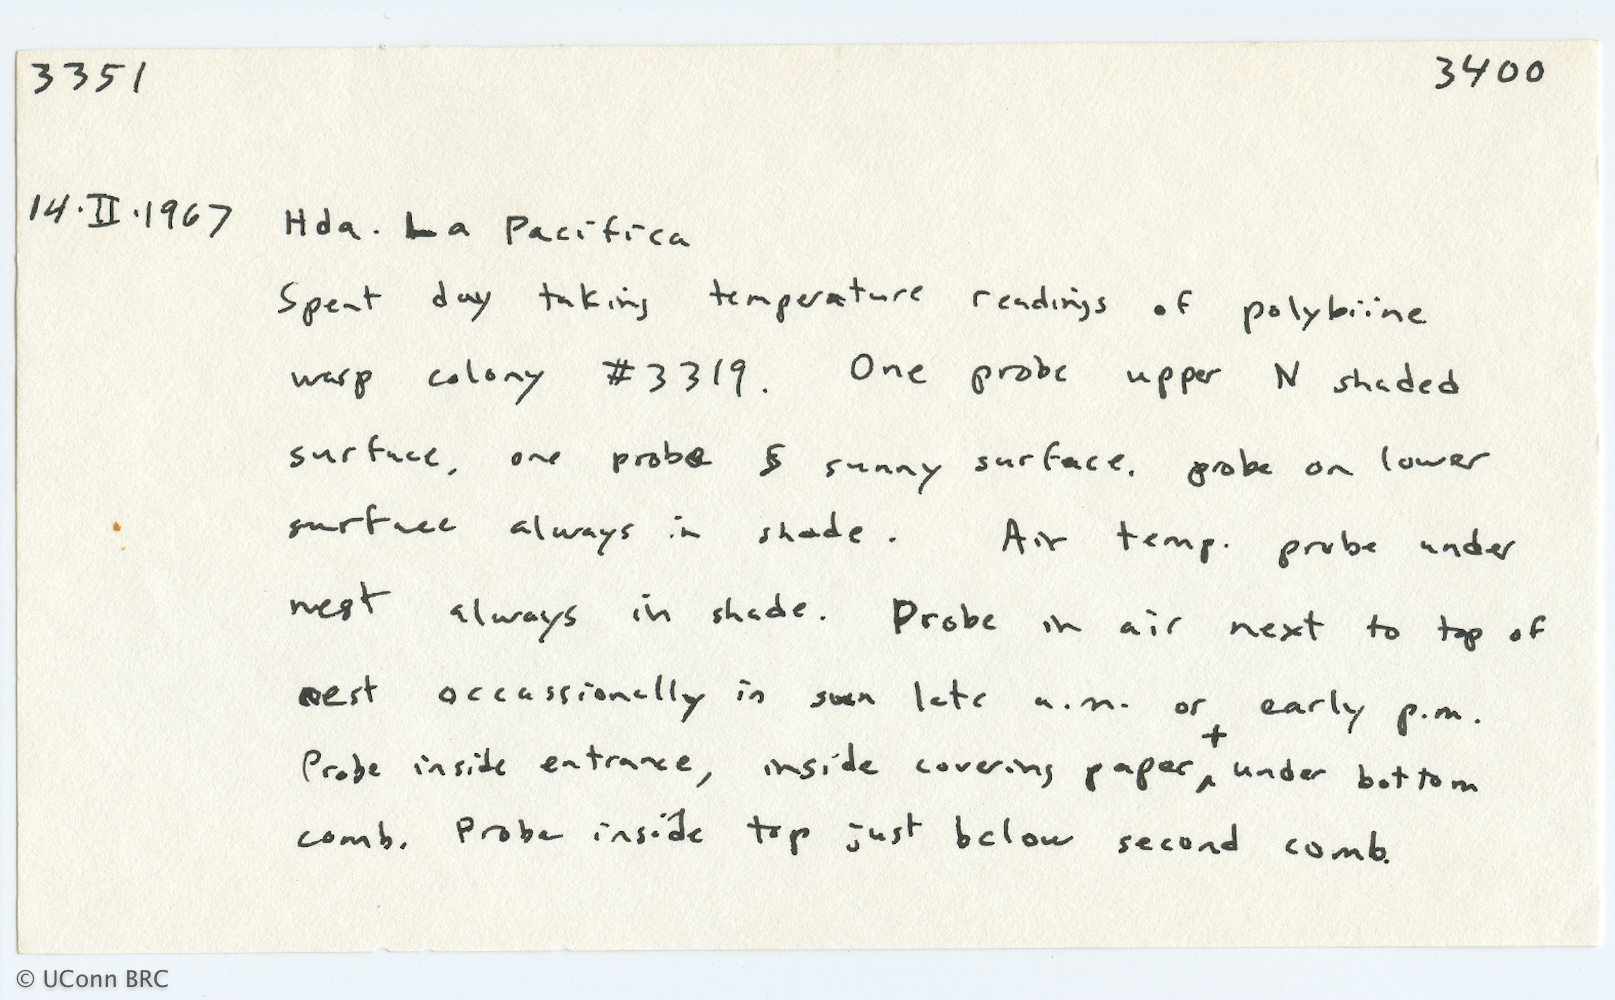 3351 3400
14·II·1967 Hda. La Pacifica
Spent day taking temperature readings of polybiine
wasp colony #3319. One probe upper N shaded
surface, one probe S sunny surface. probe on lower
surface always in shade. Air temp. probe under
nest always in shade. Probe in air next to top of
nest occassionally in sun late a.m. or early p.m.
Probe inside entrance, inside covering paper, + under bottom
comb. Probe inside top just below second comb.
© UConn BRC